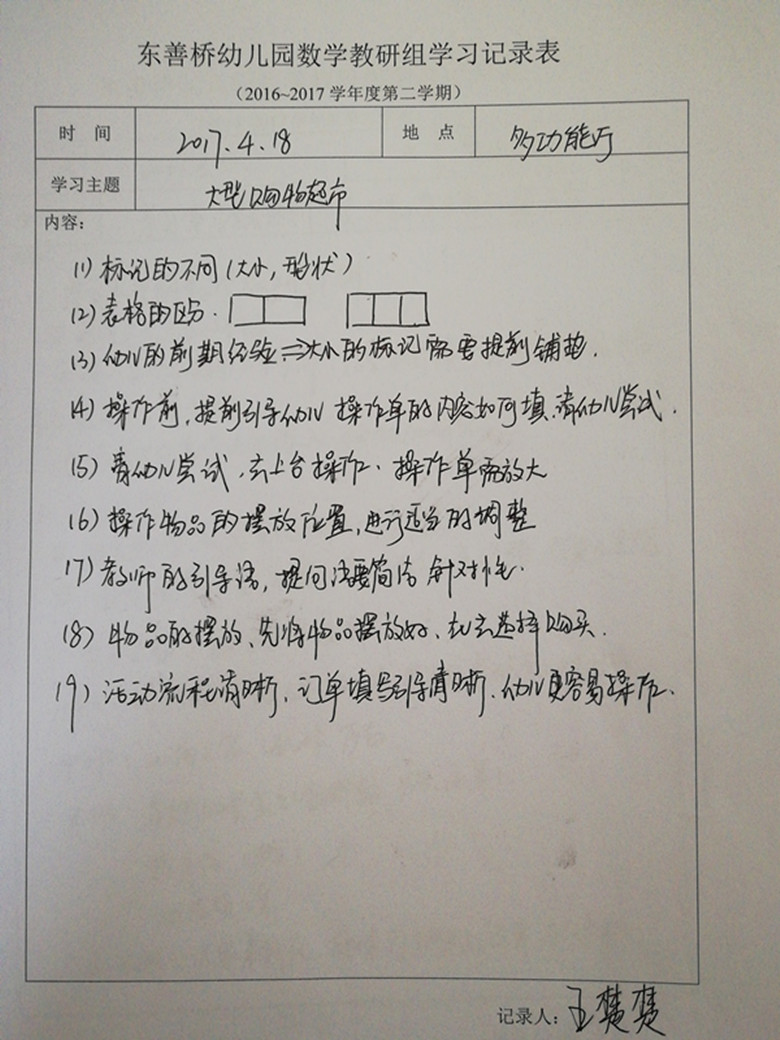 东善桥幼儿园数学教研组学习记录表
（2016~2017 学年度第二学期）
时 间 2017.4.18 地 点 多功能厅
学习主题 大型购物超市
内容：
(1) 标记的不同（大小，形状）
(2) 表格的区分.
(3) 幼儿的前期经验⇒大小的标记需要提前铺垫.
(4) 操作前，提前引导幼儿 操作单的内容如何填、请幼儿尝试.
(5) 请幼儿尝试，去上台操作、操作单需放大
(6) 操作物品的摆放位置，进行适当的调整
(7) 教师的引导语，提问语要简洁 针对性.
(8) 物品的摆放、先将物品摆放好、在去选择购买.
(9) 活动流程清晰、订单填写引导清晰、幼儿更容易操作.
记录人：王